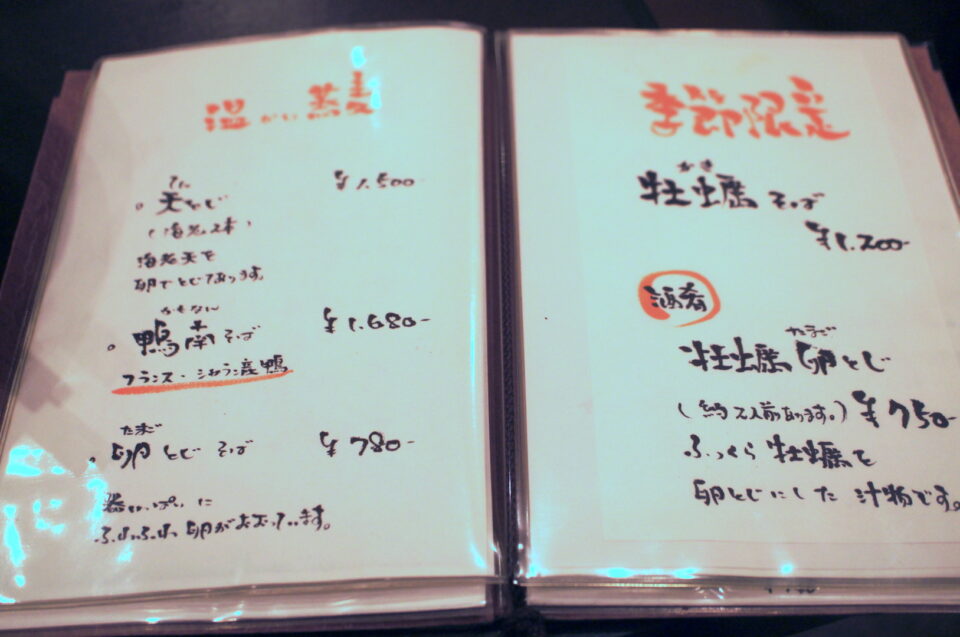 温かい蕎麦
てん
。天とじ ¥1.500
(海老2本)
海老天を
卵でとじてあります。
かもなん
。鴨南そば ¥1.680-
フランス・シャラン産鴨
たまご
。卵とじそば ¥780-
器いっぱいに
ふわふわ卵がおおっています。
季節限定
かき
牡蠣そば
¥1.200-
酒肴
たまご
牡蠣卵とじ
(約2人前あります。)¥750-
ふっくら牡蠣を
卵とじにした汁物です。